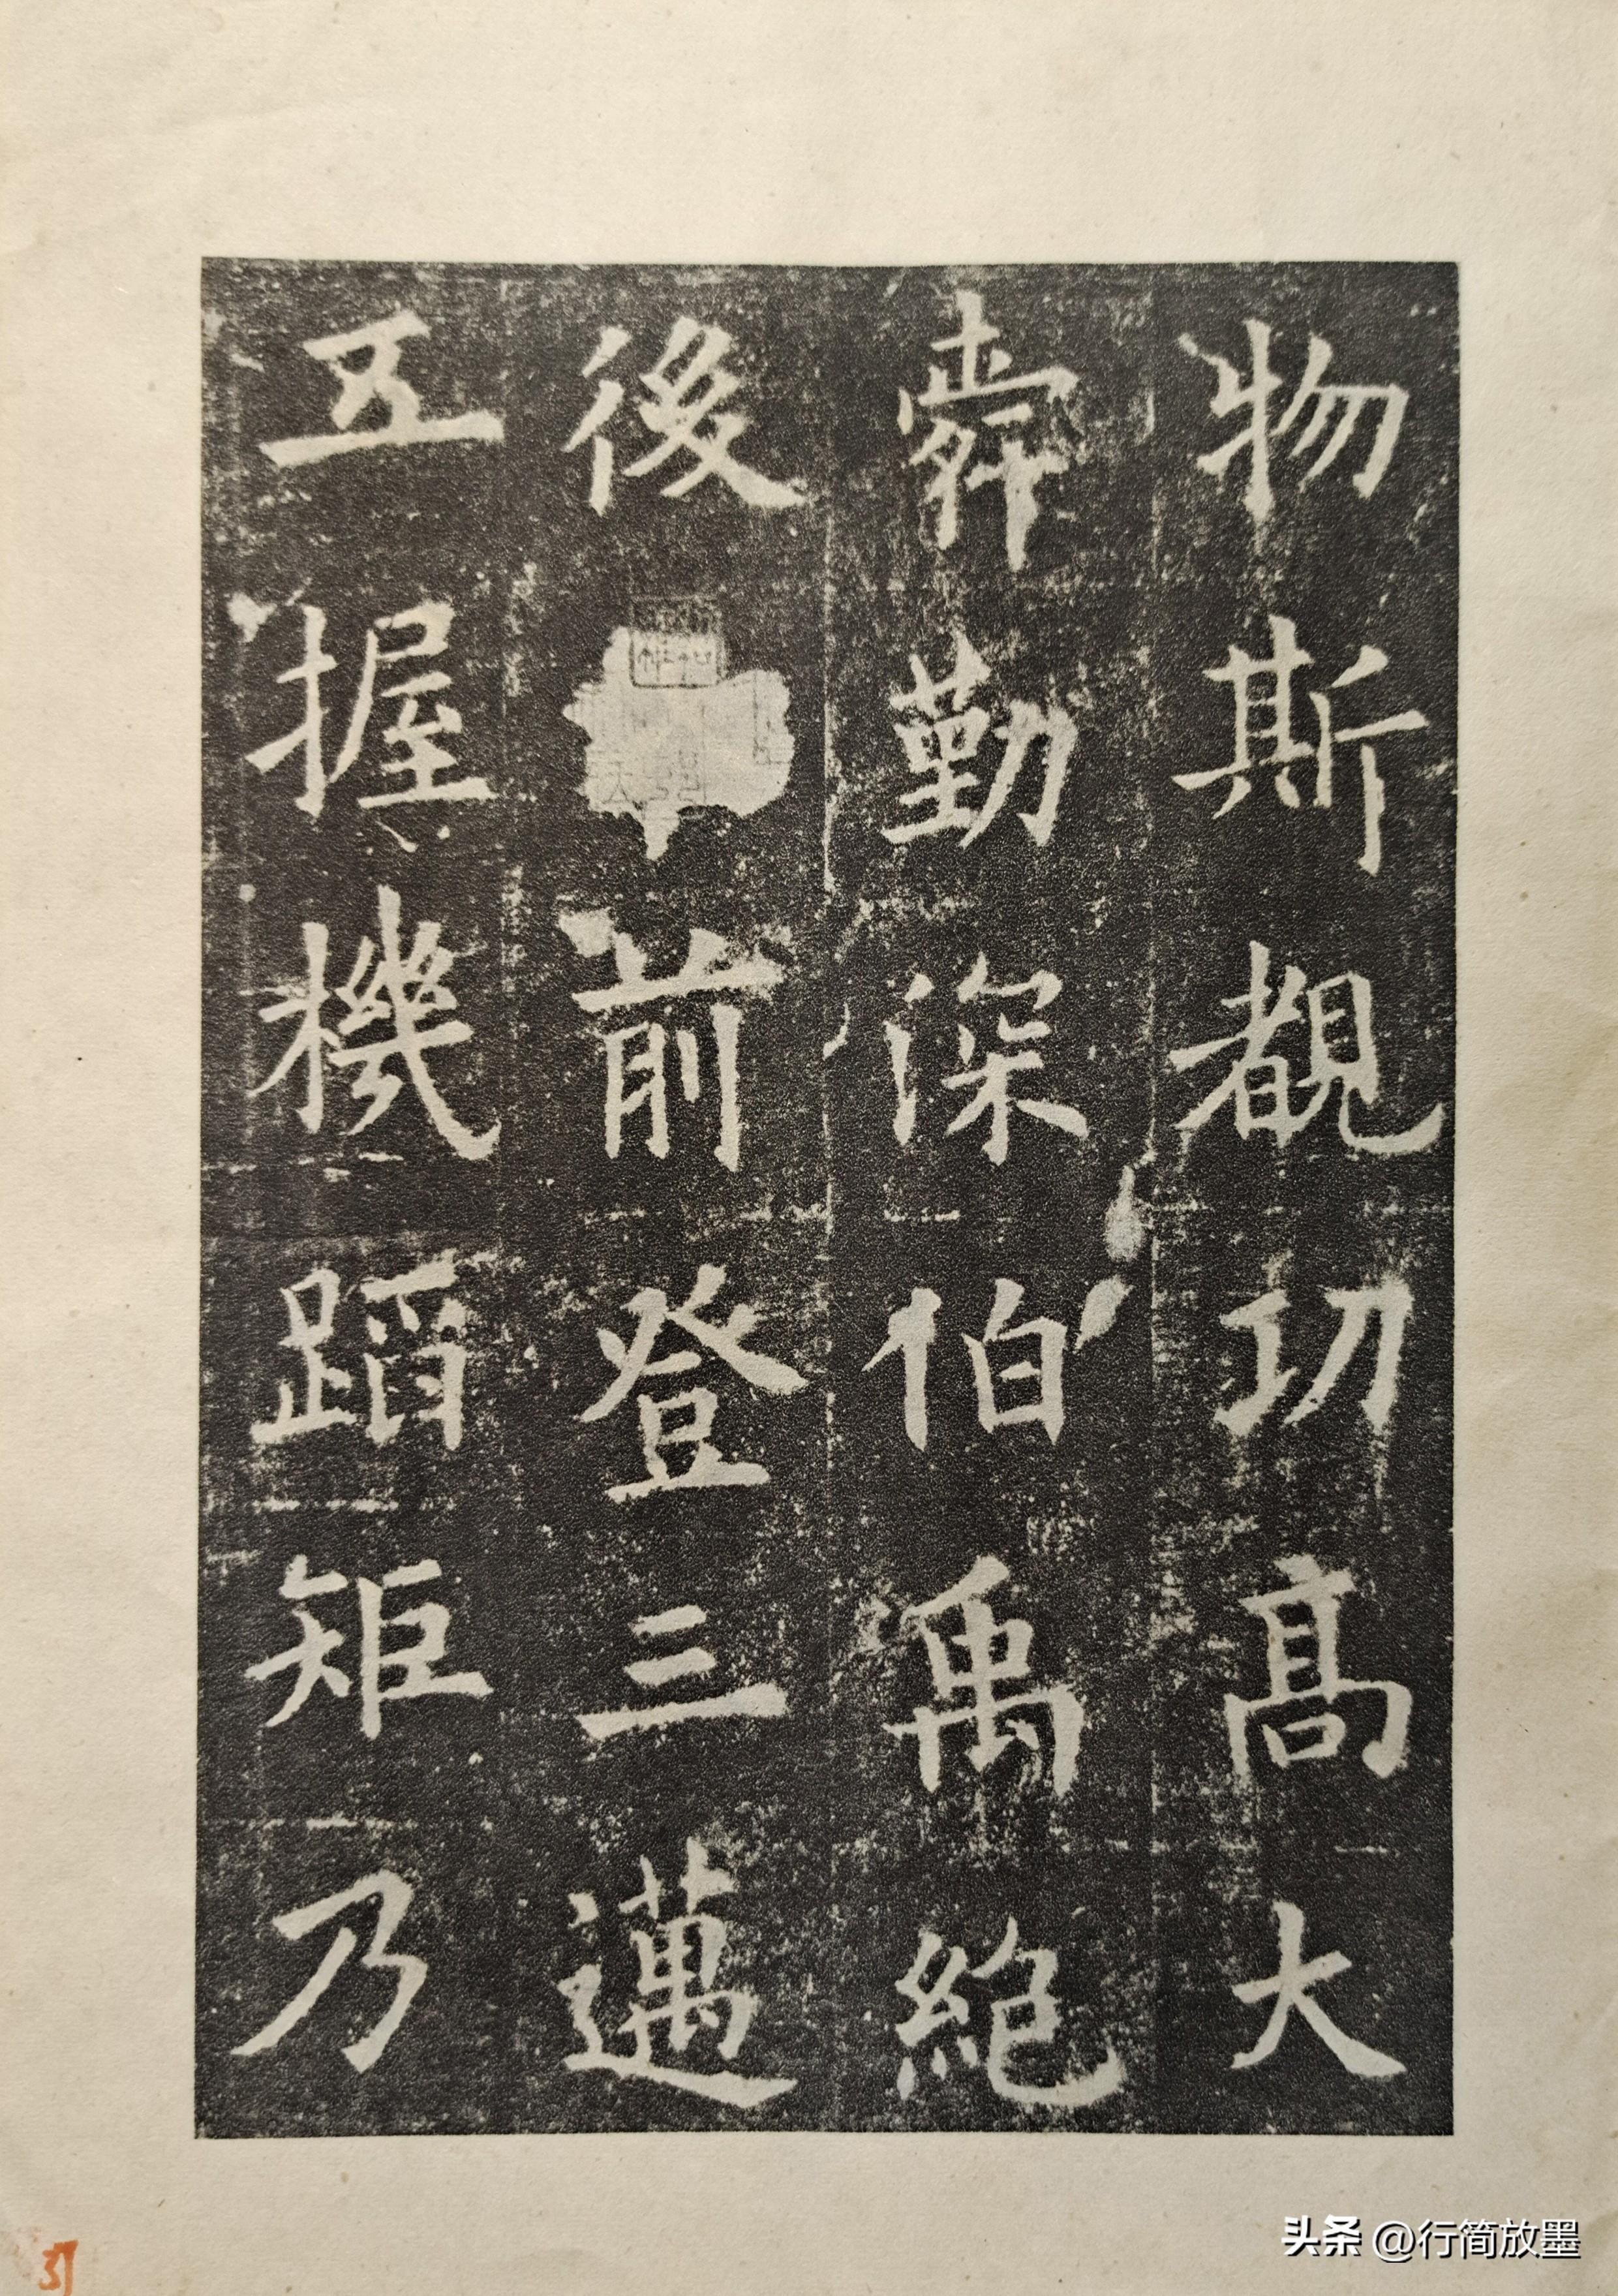 物斯覩功高大
舜勤深伯禹絕
後前登三邁
五握機蹈矩乃
31
头条 @行简放墨